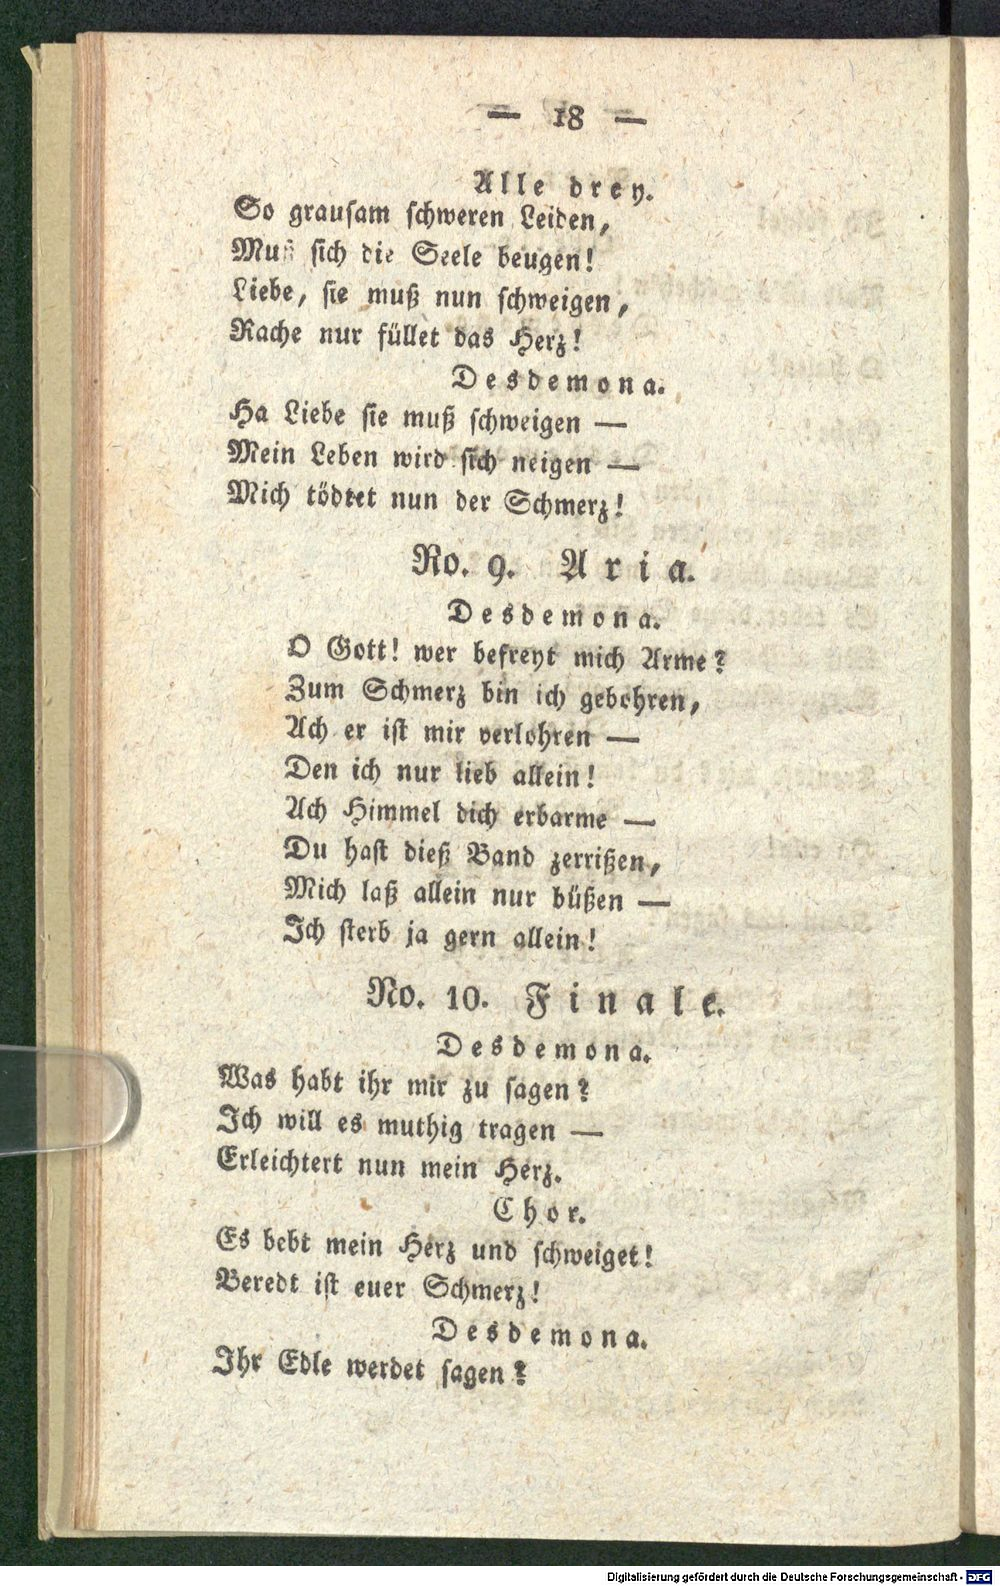 — 18 —
Alle drey.
So grausam schweren Leiden,
Muß sich die Seele beugen!
Liebe, sie muß nun schweigen,
Rache nur füllet das Herz!
Desdemona.
Ha Liebe sie muß schweigen —
Mein Leben wird sich neigen —
Mich tödtet nun der Schmerz!
No. 9. Aria.
Desdemona.
O Gott! wer befreyt mich Arme?
Zum Schmerz bin ich gebohren,
Ach er ist mir verlohren —
Den ich nur lieb allein!
Ach Himmel dich erbarme —
Du hast dieß Band zerrißen,
Mich laß allein nur büßen —
Ich sterb ja gern allein!
No. 10. Finale.
Desdemona.
Was habt ihr mir zu sagen?
Ich will es muthig tragen —
Erleichtert nun mein Herz.
Chor.
Es bebt mein Herz und schweiget!
Beredt ist euer Schmerz!
Desdemona.
Ihr Edle werdet sagen?
Digitalisierung gefördert durch die Deutsche Forschungsgemeinschaft - DFG